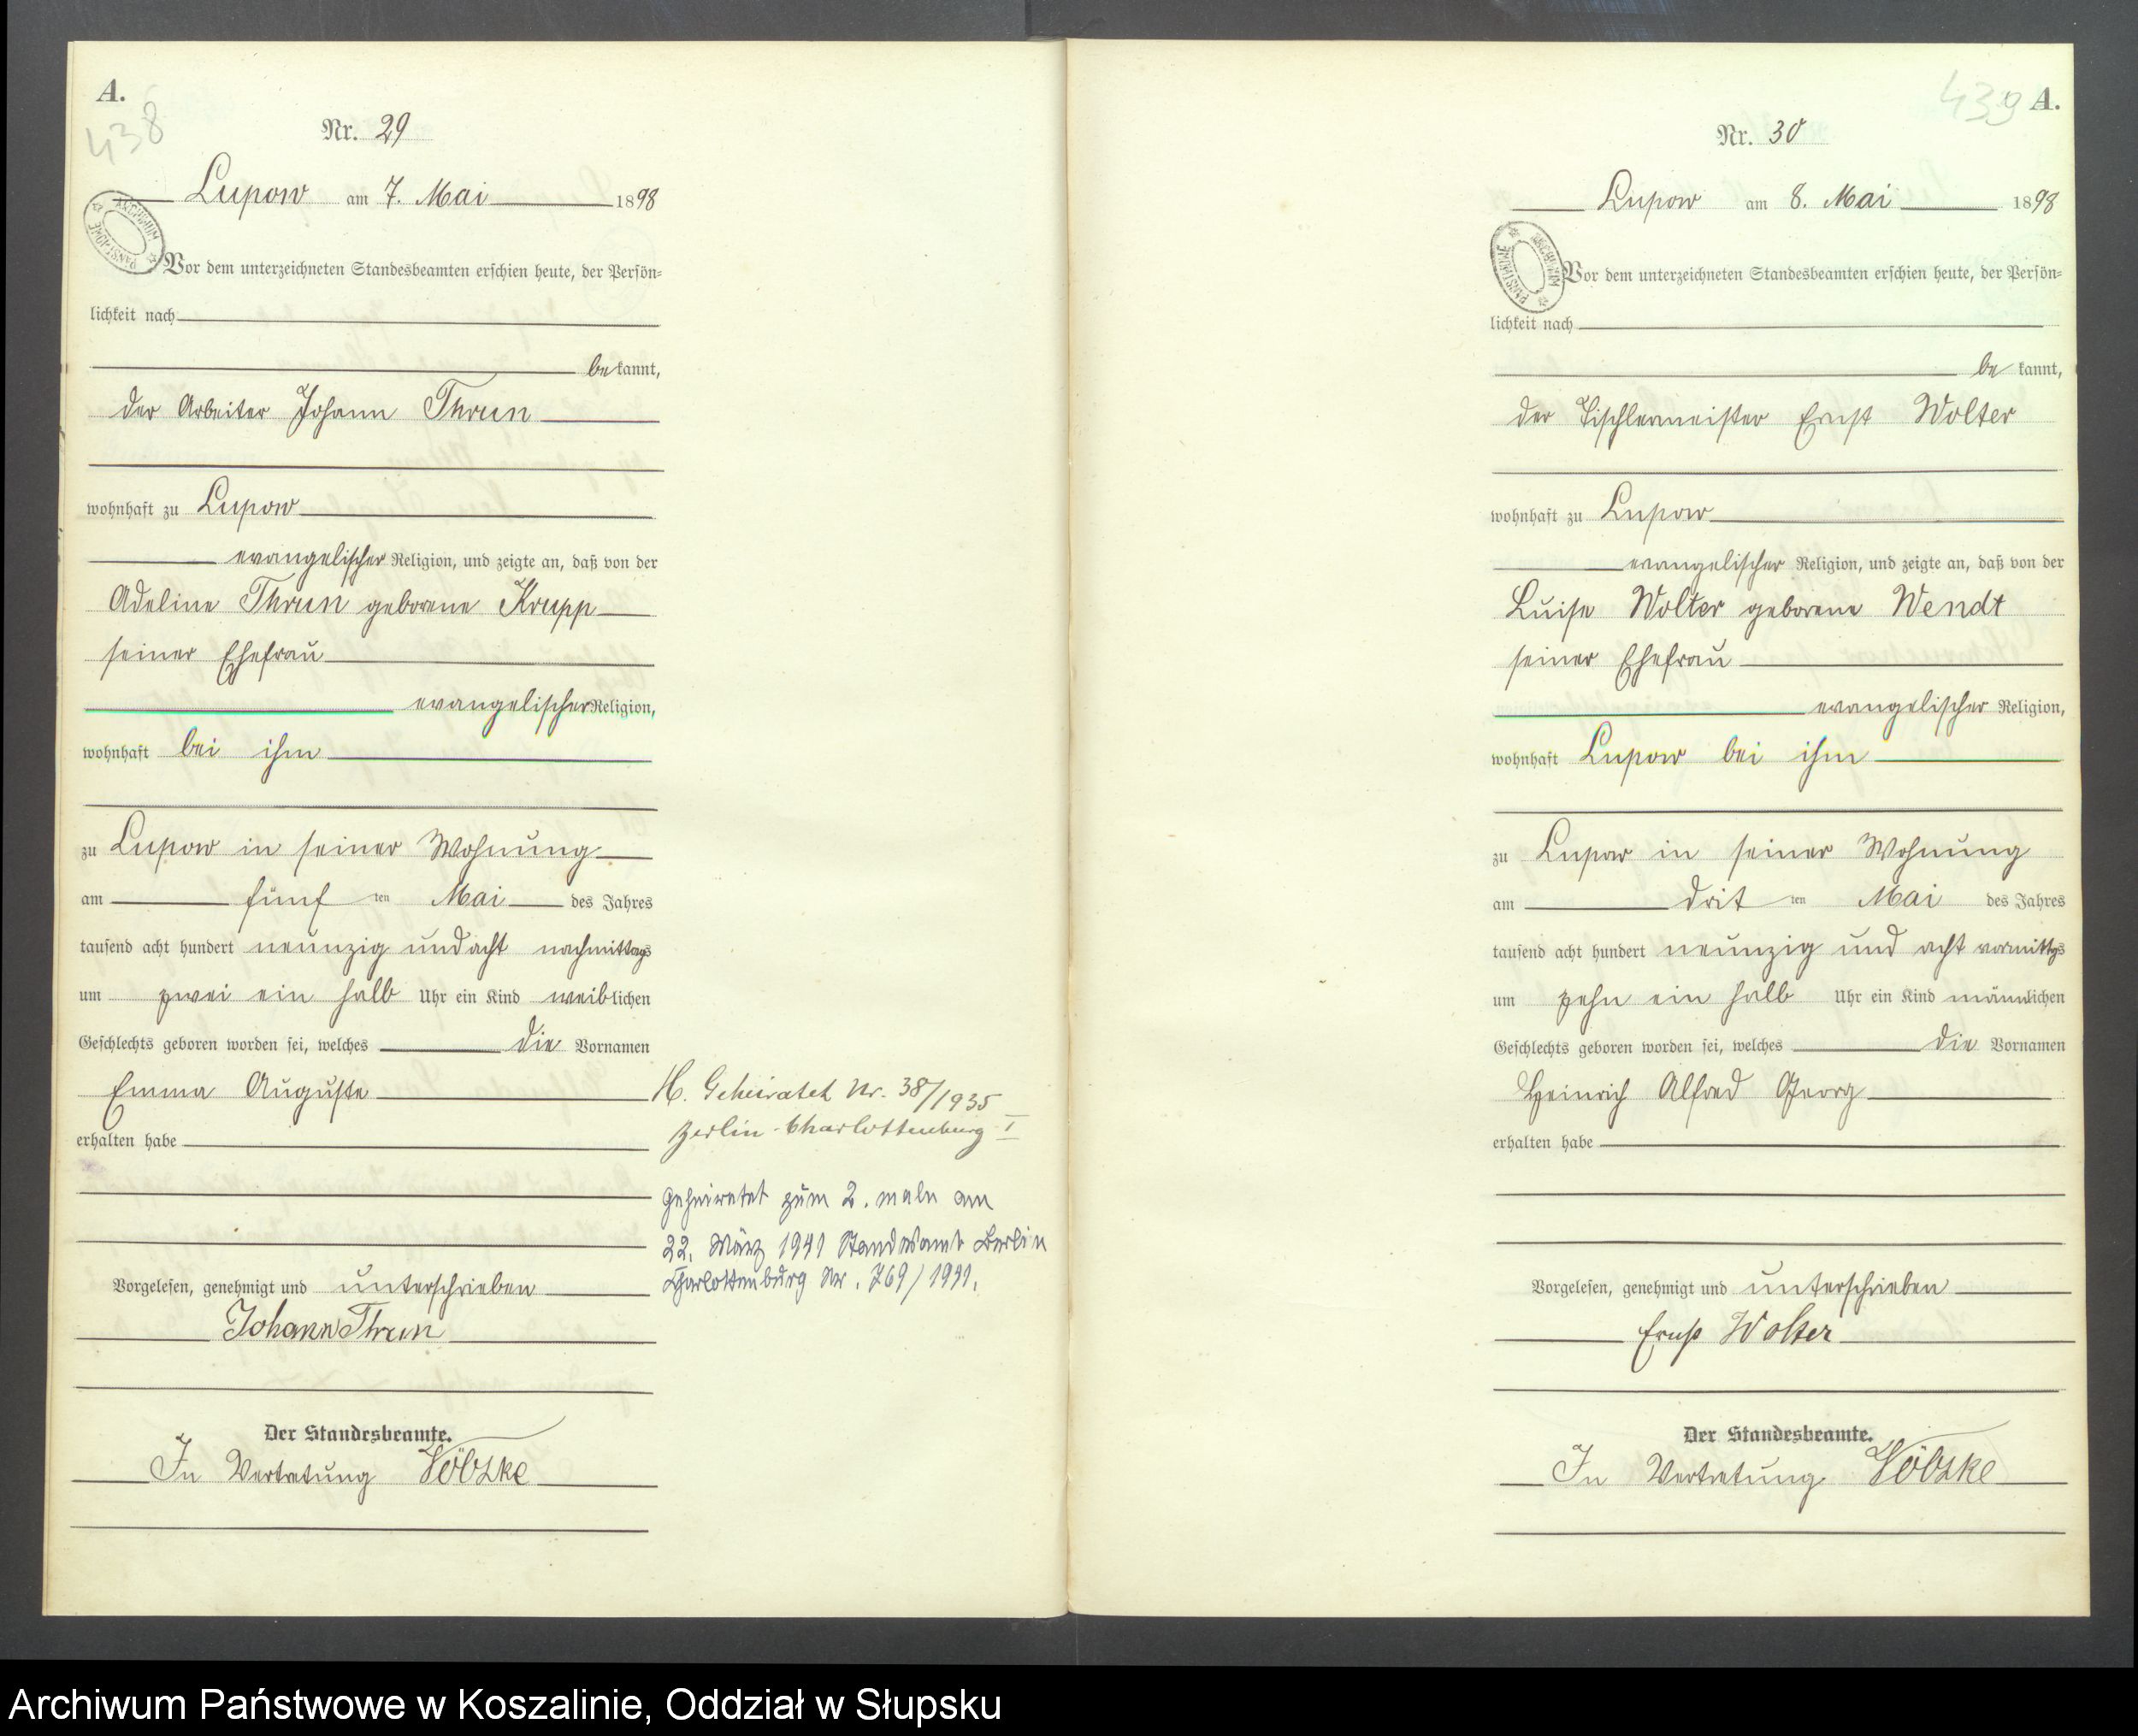 A.
438
Nr. 29
Lupow am 7. Mai 1898
Vor dem unterzeichneten Standesbeamten erschien heute, der Persön-
lichkeit nach
bekannt,
der Arbeiter Johann Thrun
wohnhaft zu Lupow
evangelischer Religion, und zeigte an, daß von der
Adeline Thrun geborene Krupp
seiner Ehefrau
evangelischer Religion,
wohnhaft bei ihm
zu Lupow in seiner Wohnung
am fünf ten Mai des Jahres
tausend acht hundert neunzig und acht nachmittags
um zwei ein halb Uhr ein Kind weiblichen
Geschlechts geboren worden sei, welches die Vornamen
Emma Auguste
erhalten habe
H. Geheiratet Nr. 38/1935
Berlin-Charlottenburg I
Geheiratet zum 2. male am
22. März 1941 Standesamt Berlin
Charlottenburg Nr. 769/1941.
Vorgelesen, genehmigt und unterschrieben
Johann Thrun
Der Standesbeamte.
In Vertretung
439 A.
Nr. 30
Lupow am 8. Mai 1898
Vor dem unterzeichneten Standesbeamten erschien heute, der Persön-
lichkeit nach
be kannt,
der Tischlermeister Ernst Wolter
wohnhaft zu Lupow
evangelischer Religion, und zeigte an, daß von der
Luise Wolter geborene Wendt
seiner Ehefrau
evangelischer Religion,
wohnhaft Lupow bei ihm
zu Lupow in seiner Wohnung
am drit ten Mai des Jahres
tausend acht hundert neunzig und acht vormittgs
um zehn ein halb Uhr ein Kind männlichen
Geschlechts geboren worden sei, welches die Vornamen
Heinrich Alfred Georg
erhalten habe
Vorgelesen, genehmigt und unterschrieben
Ernst Wolter
Der Standesbeamte.
In Vertretung
Archiwum Państwowe w Koszalinie, Oddział w Słupsku